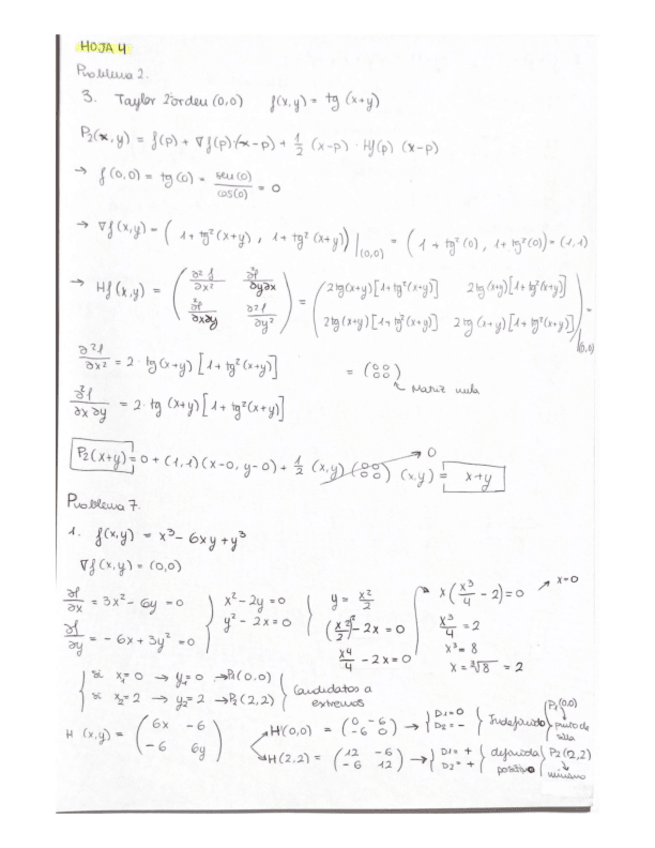 HOJA 4
Problema 2.
3. Taylor 2ºorden (0,0) f(x,y) = tg (x+y)
P₂(x,y) = f(p) + ∇f(p)·(x-p) + 1/2 (x-p) · Hf(p) (x-p)
→ f(0,0) = tg(0) = sen(0)/cos(0) = 0
→ ∇f(x,y) = ( 1+tg²(x+y) , 1+tg²(x+y) ) |(0,0) = ( 1+tg²(0) , 1+tg²(0) ) = (1,1)
→ Hf(x,y) = ( ∂²f/∂x² ∂²f/∂y∂x ; ∂²f/∂x∂y ∂²f/∂y² ) = ( 2tg(x+y)[1+tg²(x+y)] 2tg(x+y)[1+tg²(x+y)] ; 2tg(x+y)[1+tg²(x+y)] 2tg(x+y)[1+tg²(x+y)] ) |(0,0) =
∂²f/∂x² = 2·tg(x+y)[1+tg²(x+y)] = (0 0 ; 0 0)
Matriz nula
∂²f/∂x∂y = 2·tg(x+y)[1+tg²(x+y)]
P₂(x+y) = 0 + (1,1)(x-0, y-0) + 1/2 (x,y) (0 0 ; 0 0) (x,y) = x+y → 0
Problema 7.
1. f(x,y) = x³ - 6xy + y³
∇f(x,y) = (0,0)
∂f/∂x = 3x² - 6y = 0 } x² - 2y = 0 } y = x²/2 → x(x³/4 - 2) = 0 → x=0
∂f/∂y = -6x + 3y² = 0 } y² - 2x = 0 } (x²/2)² - 2x = 0 x³/4 = 2
x⁴/4 - 2x = 0 x³ = 8
x = ∛8 = 2
si x₁=0 → y₁=0 → P₁(0,0)
si x₂=2 → y₂=2 → P₂(2,2) } Candidatos a extremos
H(x,y) = ( 6x -6 ; -6 6y )
H(0,0) = ( 0 -6 ; -6 0 ) → { D1=0 D2= - } Indefinido } P₁(0,0) ↓ punto de silla
H(2,2) = ( 12 -6 ; -6 12 ) → { D1= + D2= + } definida positiva } P₂(2,2) ↓ mínimo